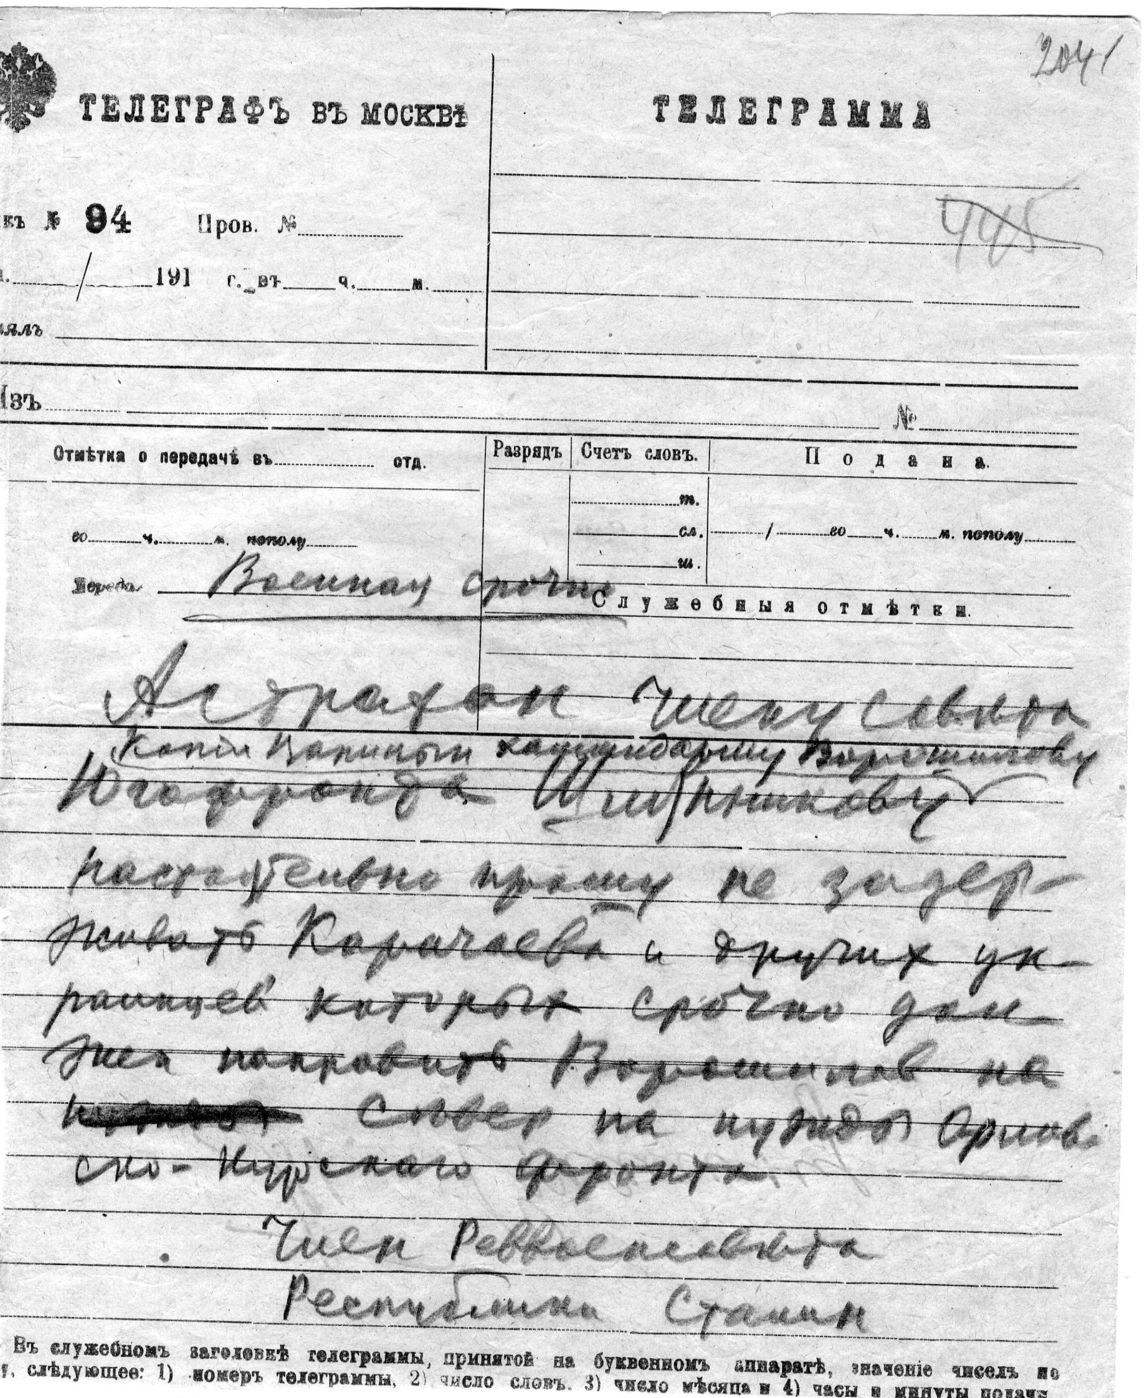 2041
ТЕЛЕГРАФЪ ВЪ МОСКВѢ
ТЕЛЕГРАММА
№ 94 Пров. №
445
/ 191 г. въ ч. м.
Изъ
№
Отмѣтка о передачѣ въ отд.
Разрядъ Счетъ словъ. Подана.
т.
го ч. м. пополу
сл. / го ч. м. пополу
ш.
Военная срочно
Служебныя отмѣтки.
Астрахан Члену Совѣта
Копия Царицын командарму Ворошилову
Югофронта
настоятельно прошу не задер-
живать Карачаева и других ук-
раинцев которых срочно дол-
жен направить Ворошилов на
север на нужды Орловс
ско-Курскаго фронта.
Член Реввоенсовѣта
Республики Сталин
Въ служебномъ заголовкѣ телеграммы, принятой на буквенномъ аппаратѣ, значеніе чиселъ по
слѣдующее: 1) номеръ телеграммы, 2) число словъ. 3) число мѣсяца и 4) часы и минуты подачи.